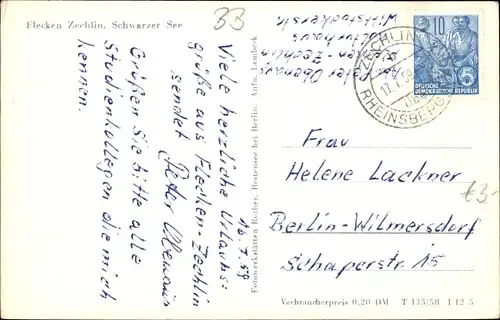 Flecken Zechlin, Schwarzer See
33
16.7.59
Viele herzliche Urlaubs-
grüße aus Flecken-Zechlin
sendet Peter Obenaus
Grüßen Sie bitte alle
Studienkollegen die mich
kennen.
Abs. Peter Obenaus
Flecken-Zechlin
Wittstockerstr.
Fotowerkstätten Rother, Bestensee bei Berlin. Aufn. Lambeck
ZECHLIN
RHEINSBERG
10
DEUTSCHE
DEMOKRATISCHE REPUBLIK
Frau
Helene Lackner
Berlin-Wilmersdorf
Schaperstr. 15
€3,-
Verbraucherpreis 0,20 DM T 135/58 I 12 5